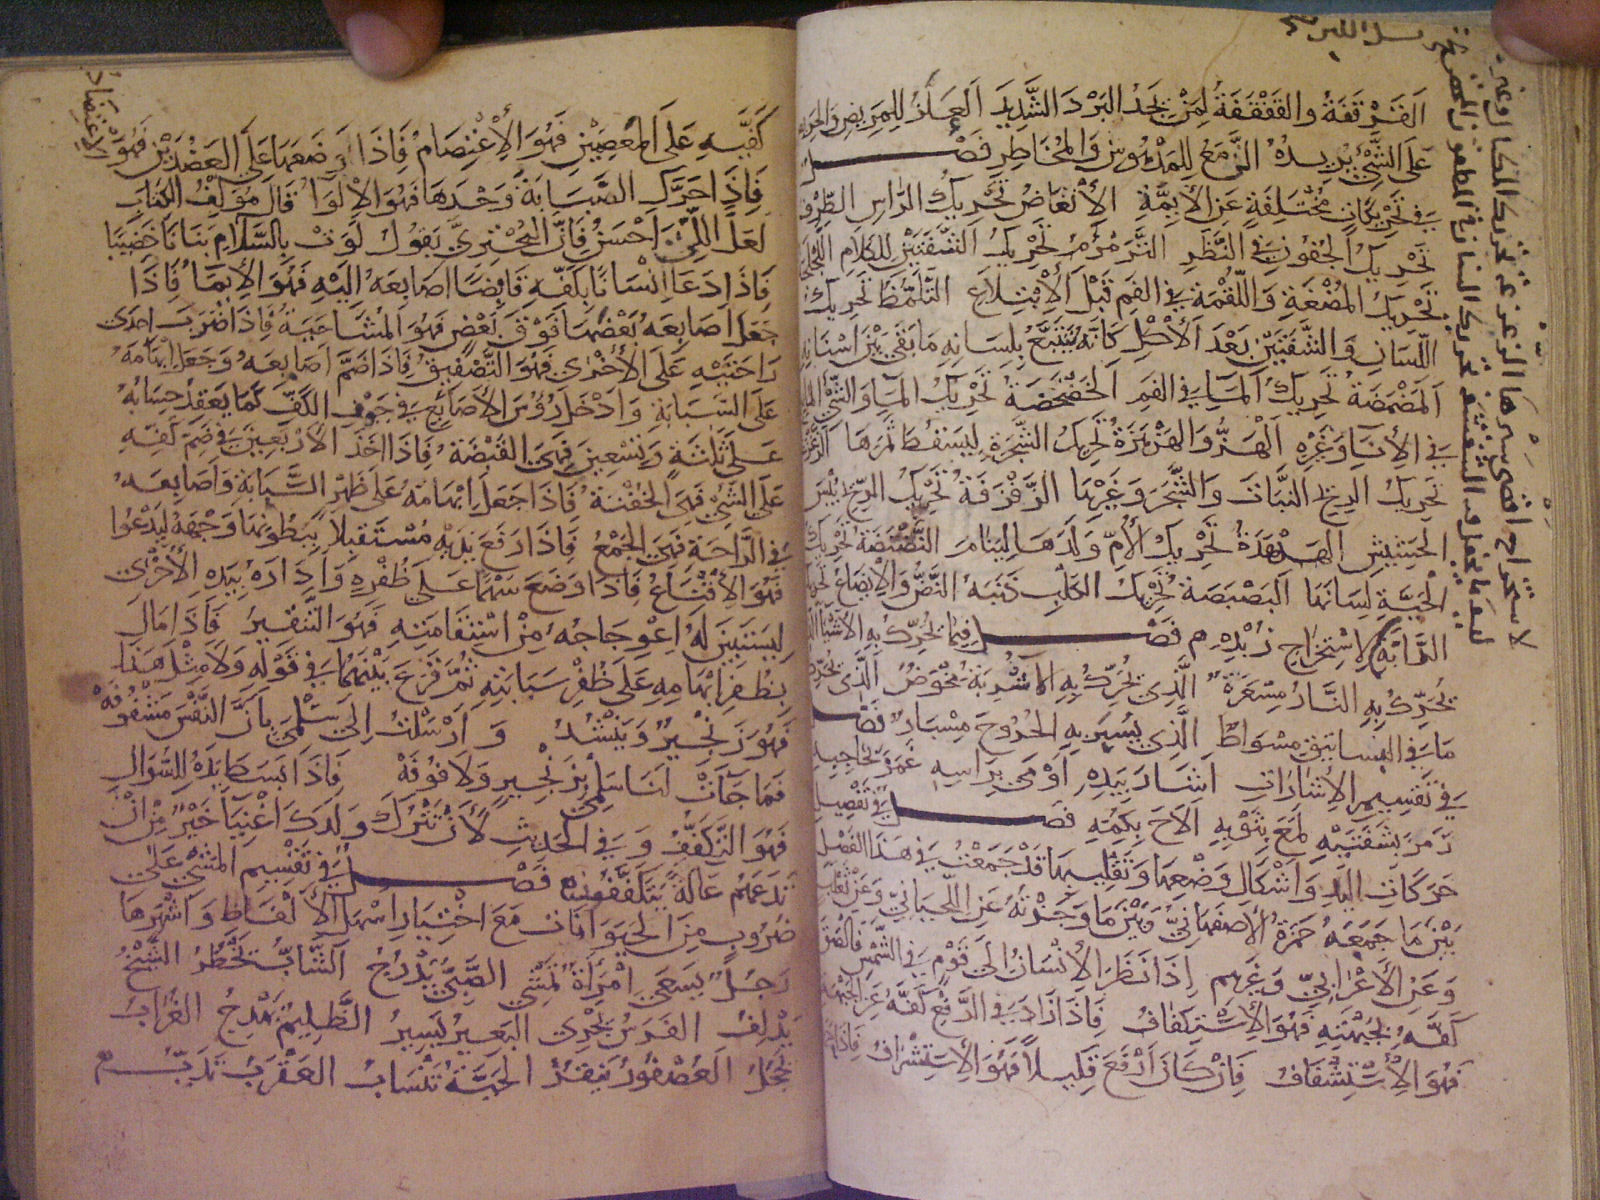 القرقفة والقفقفة لمن يجد البرد الشديد العلز للمريض والحريص
على الشيء يريده الزمع للمدهوش والمخاطر فصل
في تحريكات مختلفة عن الأيمة الأنغاض تحريك الراس الطرف
تحريك الجفون في النظر الترمرم تحريك الشفتين للكلام اللجلجة
تحريك المضغة واللقمة في الفم قبل الأبتلاع التلمظ تحريك
اللسان والشفتين بعد الأكل كانه يتتبع بلسانه ما بقي بين اسنانه
المضمضة تحريك الما في الفم الخضخضة تحريك الما والشي المايع
في الأنا وغيره الهز والهزهزة تحريك الشجرة ليسقط ثمرها الزعزعة
تحريك الريح النبات والشجر وغيرها الزفزفة تحريك الريح يبس
الحشيش الهدهدة تحريك الأم ولدها لينام النضنضة تحريك
الحية لسانها البصبصة تحريك الكلب ذنبه النص والإيضاع تحريك
الدابة لاستخراج زبده م فصل فيما تحرك به الأشيا الذي
تحرك به النار مسعر الذي تحرك به الاشربة مخوض الذي تحرك
ما في البساتيق مسواط الذي يسبر به الجروح مسبار فصل
في تقسيم الإشارات اشار بيده اومى براسه غمز بحاجبه
رمز بشفتيه لمع بثوبه الاح بكمه فصل في تفصيل
حركات اليد واشكال وضعها وتقليبها قد جمعت في هذا الفصل
بين ما جمعه حمزة الأصفهاني وبين ما وجدته عن اللحياني وعن ثعلب
وعن الأعرابي وغيرهم اذا نظر الأنسان الى قوم في الشمس فالصق
كفه بجبهته فهو الأستكفاف فاذا زاد في رفع كفه عن الجبهة
فهو الأستشفاف فان كان ارفع قليلا فهو الأستشراف فاذا
لاستخراج اقصى سيرها الزعزعة تحريك
كفيه على المعصمين فهو الأعتصام فاذا وضعها على العضدين فهو
الاعتضاد
فاذا حرك السبابة وحدها فهو الالوا قال مؤلف الكتاب
لعل اللي احسن فان البحتري يقول لوت بالسلام بنانا خضيبا
فاذا دعا انسانا بكفه قابضا اصابعه اليه فهو الايما فاذا
جعل اصابعه بعضها فوق بعض فهو المشاجبة فاذا ضرب احدى
راحتيه على الأخرى فهو التصفيق فاذا ضم اصابعه وجعل ابهامه
على السبابة وادخل رؤس الأصابع في جوف الكف كما يعقد حسابه
على ثلثة وتسعين فهي القبضة فاذا اخذ الأربعين في ضم كفه
على الشي فهي الحفنة فاذا جعل ابهامه على ظهر السبابة واصابعه
في الراحة فهي الجمع فاذا رفع يديه مستقبلا ببطونها وجهه ليدعوا
فهو الاقناع فاذا وضع سهما على ظفره واداره بيده الأخرى
ليستبين له اعوجاجه من استقامته فهو التنقير فاذا مال
بظفر ابهامه على ظفر سبابته ثم قرع بينهما في قوله ولا مثل هذا
فهو زنجير وينشد وارسلت الى سلمى بان النفس مشغوفه
فما جات لنا سلمى بزنجير ولا فوفه فاذا بسط يده للسؤال
فهو التكفف وفي الحديث لأن تترك ولدك اغنيا خير من ان
تدعهم عالة يتكففون فصل في تقسيم المشي على
ضروب من الحيوانات مع اختيار اسهل الألفاظ واشهرها
رجل يسعى امرأة تمشي الصبي يدرج الشاب يخطر الشيخ
يدلف الفرس يجري البعير يسير الظليم يهدج الغراب
يحجل العصفور ينقز الحية تنساب العقرب تدب م